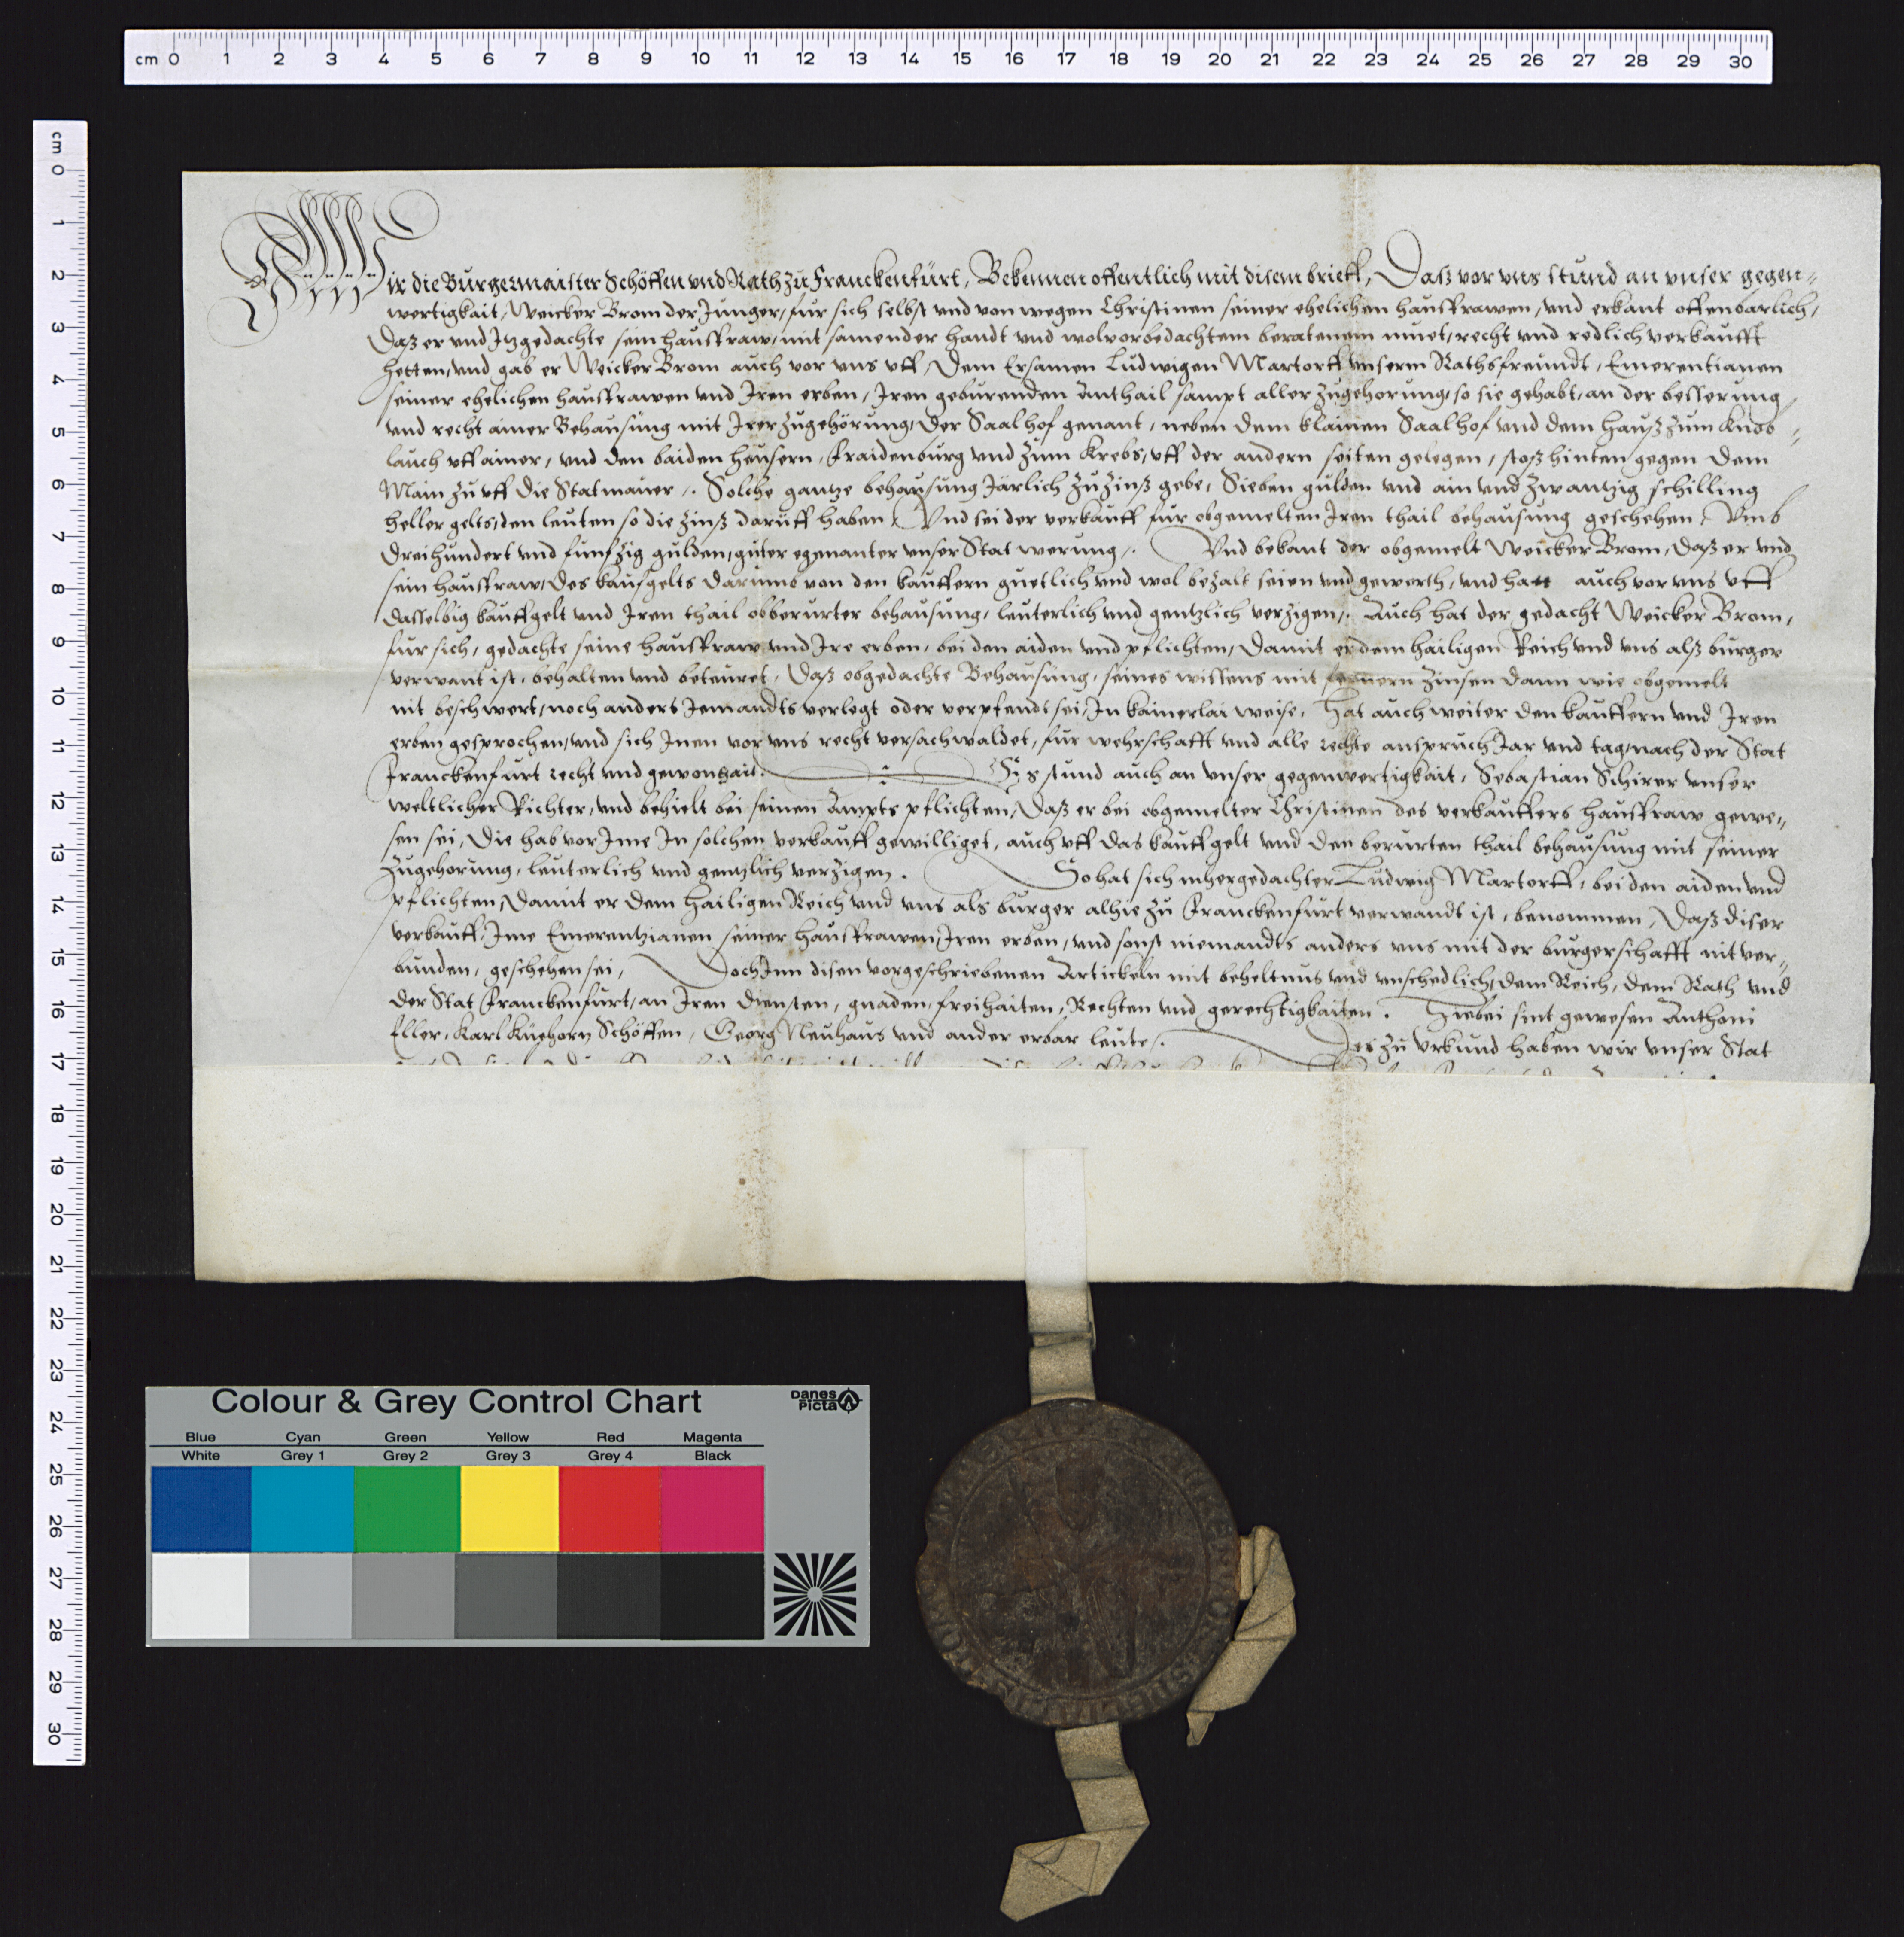 Wir die Burgermaister Schöffen vnd Rath zu Franckenfurt, Bekennen offentlich mit disem brieff, Daß vor vns stund an vnser gegen-
wertigkait, Weicker Brom der Junger, fur sich selbst vnd von wegen Christinen seiner ehelichen hausfrawen, vnd erkant offenbarlich,
Daß er vnd Itzgedachte sein hausfraw, mit samender handt vnd wolvorbedachtem beratenem muet, recht vnd redlich verkaufft
hetten, vnd gab er Weicker Brom auch vor vns vff, Dem Ersamen Ludwigen Martorff vnserm Rathsfreundt, Emerentianen
seiner ehelichen hausfrawen vnd Iren erben, Iren geburenden Anthail sampt aller zugehorung, so sie gehabt, an der besserung
vnd recht ainer Behausung mit Irer zugehörung, Der Saalhof genant, neben dem klainen Saalhof vnd dem hauß zum knob-
lauch vff ainer, vnd den baiden heusern, Fraidenburg vnd zum Krebs, vff der andern seiten gelegen, stoß hinten gegen dem
Main zu vff die Statmauer. Solche gantze behausung Järlich zu zinß gebe, Sieben gulden vnd ain vnd zwantzig schilling
heller gelts, den leuten so die zinß daruff haben, Vnd sei der verkauff fur obgemelten Iren thail behausung geschehen, Vmb
Dreihundert vnd funfzig gulden, guter egenanter vnser Stat werung. Vnd bekant der obgemelt Weicker Brom, daß er vnd
sein hausfraw, des kaufgelts darumb von den kauffern guetlich vnd wol bezalt seien vnd gewerth, vnd hatt auch vor vns vff
dasselbig kauffgelt vnd Iren thail obberurter behausung, leuterlich vnd gentzlich verzigen. Auch hat der gedacht Weicker Brom,
fur sich, gedachte seine hausfraw vnd Ire erben, bei den aiden vnd pflichten, Damit er dem hailigen Reich vnd vns alß burger
verwant ist, behalten vnd beteuret, Daß obgedachte Behausung, seines wissens mit fernern zinsen dann wie obgemelt
nit beschwert, noch anders Jemandts verlegt oder verpfendt sei, In kainerlai weise, Hat auch weiter den kauffern vnd Iren
erben gesprochen, vnd sich Inen vor vns recht versachwaldet, fur wehrschafft vnd alle rechte anspruch Jar vnd tag, nach der Stat
Franckenfurt recht vnd gewonhait. Es stund auch an vnser gegenwertigkait, Sebastian Schirer vnser
weltlicher Richter, vnd behielt bei seinen Ampts pflichten, Daß er bei obgemelter Christinen des verkauffers hausfraw gewe-
sen sei, Die hab vor Ime In solchen verkauff gewilliget, auch vff das kauffgelt vnd den berurten thail behausung mit seiner
zugehorung, leuterlich vnd gentzlich verzigen. So hat sich mhergedachter Ludwig Martorff, bei den aiden vnd
pflichten, Damit er dem hailigen Reich vnd vns als burger alhie zu Franckenfurt verwandt ist, benommen, Daß diser
verkauff, Ime Emerentzianen seiner hausfrawen, Iren erben, vnd sonst niemandts anders vns mit der burgerschafft nit ver-
bunden, geschehen sei, Doch Inn disen vorgeschriebenen Artickeln mit beheltnus vnd vnschedlich, dem Reich, dem Rath vnd
der Stat Franckenfurt, an Iren diensten, gnaden, freihaiten, Rechten vnd gerechtigkaiten. Hiebei sint gewesen Anthoni
Eller, Karl Kuehorn Schöffen, Georg Neuhaus vnd ander erbar leute. Des zu vrkund haben wir vnser Stat
cm 0 1 2 3 4 5 6 7 8 9 10 11 12 13 14 15 16 17 18 19 20 21 22 23 24 25 26 27 28 29 30
cm 0 1 2 3 4 5 6 7 8 9 10 11 12 13 14 15 16 17 18 19 20 21 22 23 24 25 26 27 28 29 30
Colour & Grey Control Chart
Danes
Picta
Blue Cyan Green Yellow Red Magenta
White Grey 1 Grey 2 Grey 3 Grey 4 Black